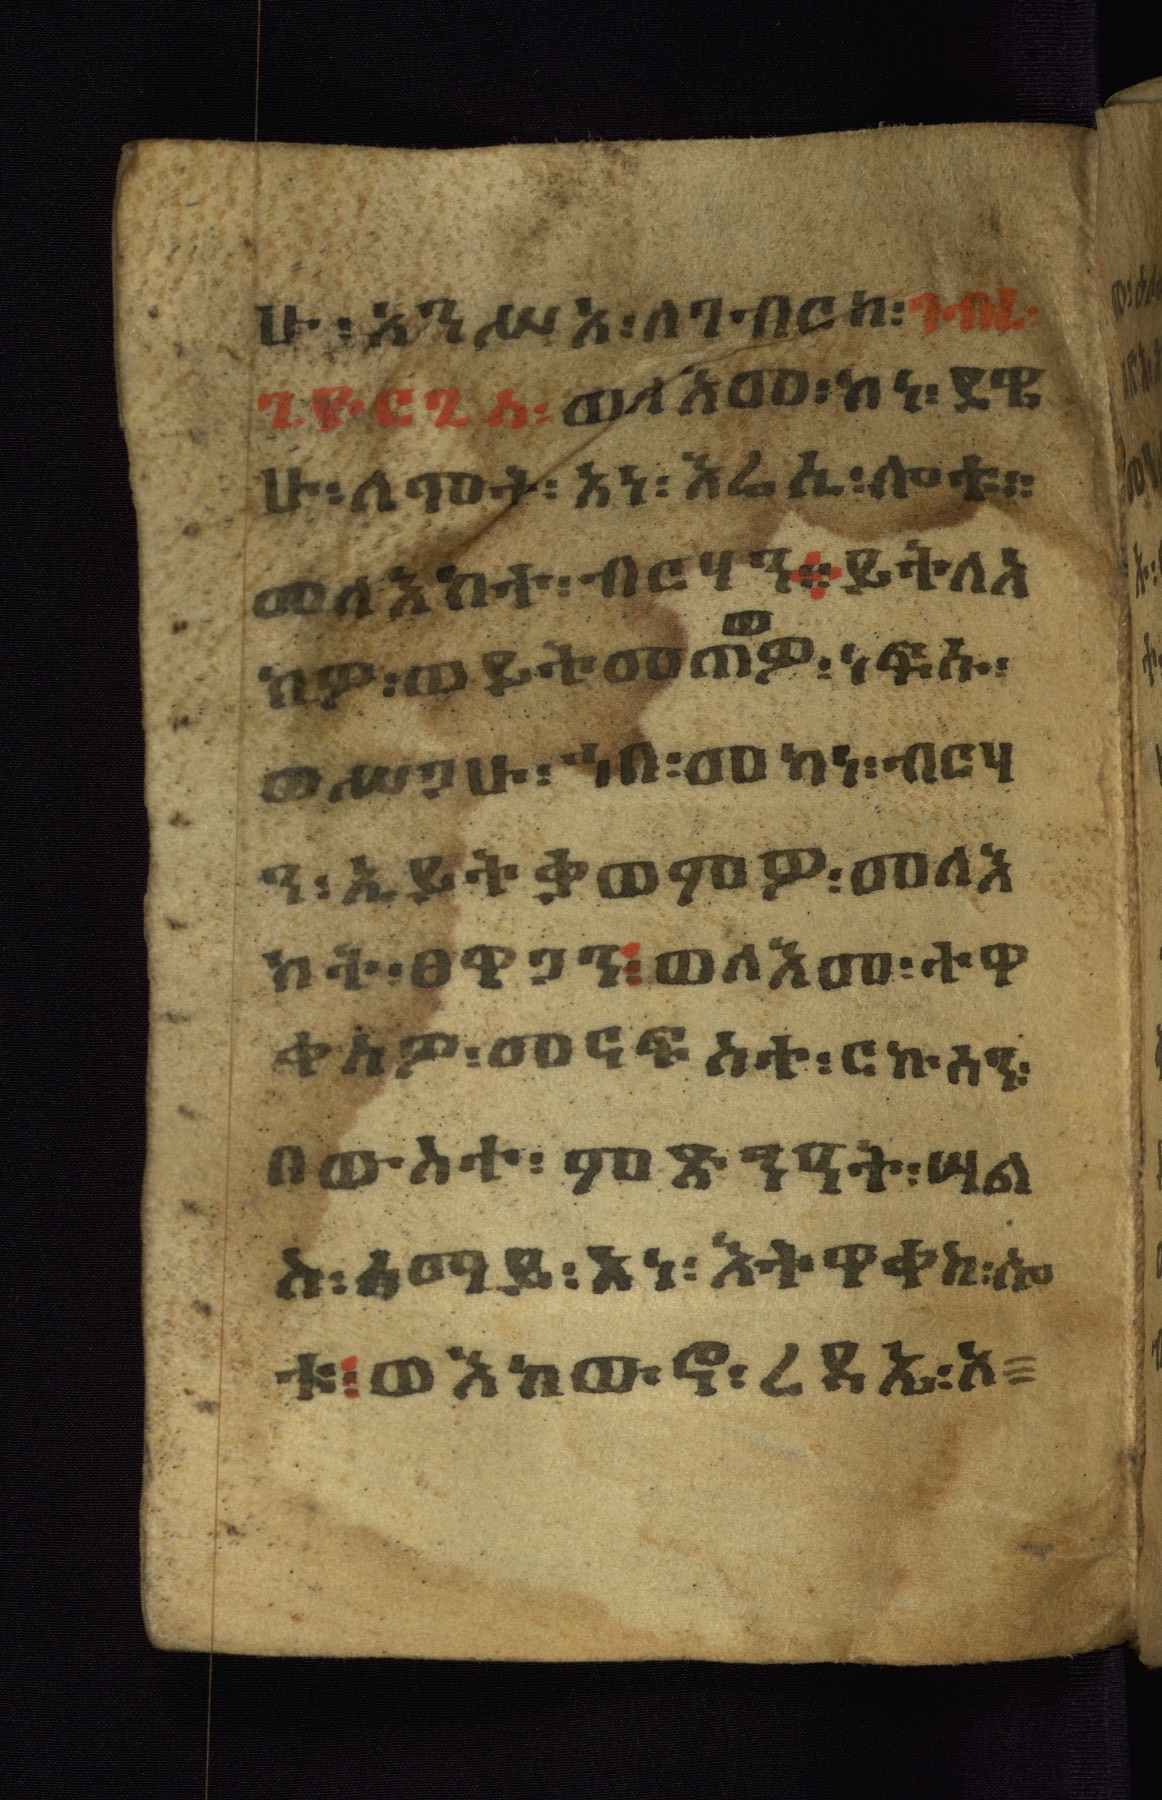 ሁ ፡ እንሥእ ፡ ለገብርከ ፡ ገብረ ፡
ጊዮርጊስ ፡ ወለእመ ፡ ከነ ፡ ጽዋ
ሁ ፡ ለሞት ፡ አነ ፡ እሬሲ ፡ ሎቱ ።
መለእክተ ፡ ብርሃን ። ይትለአ
ክዎ ፡ ወይትመጠውዎ ፡ ነፍሱ ፡
ወሥጋሁ ፡ ኀበ ፡ መካነ ፡ ብርሃ
ን ፡ ኢይትቃወምዎ ፡ መለእ
ክተ ፡ ፀዋጋን ፡ ወለእመ ፡ ተዋ
ቀስዎ ፡ መናፍስተ ፡ ርኩሳን ፡
በውስተ ፡ ምጽንዓት ፡ ሣል
ሱ ፡ ሰማይ ፡ አነ ፡ እትዋቀስ ፡ ሎ
ቱ ፡ ወእከውኖ ፡ ረዳኤ ፡ አ